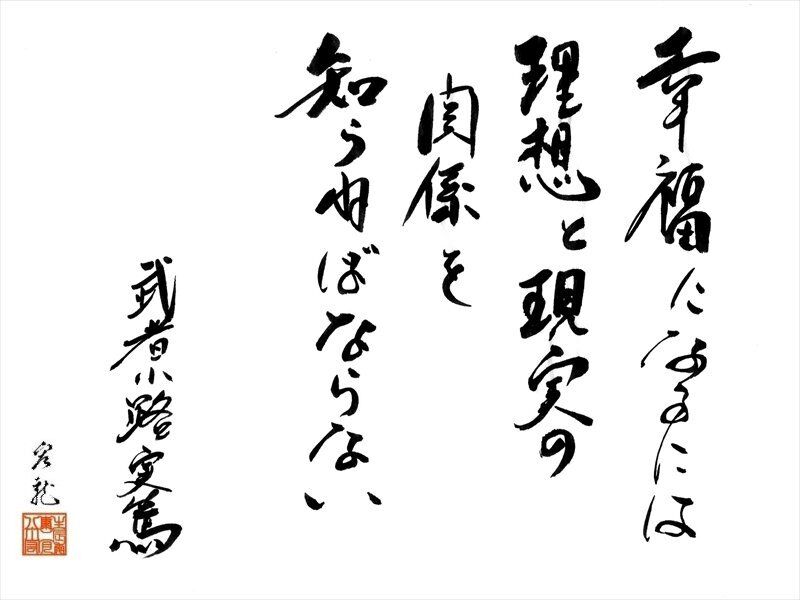 幸福になるには
理想と現実の
関係を
知らねばならない
武者小路実篤